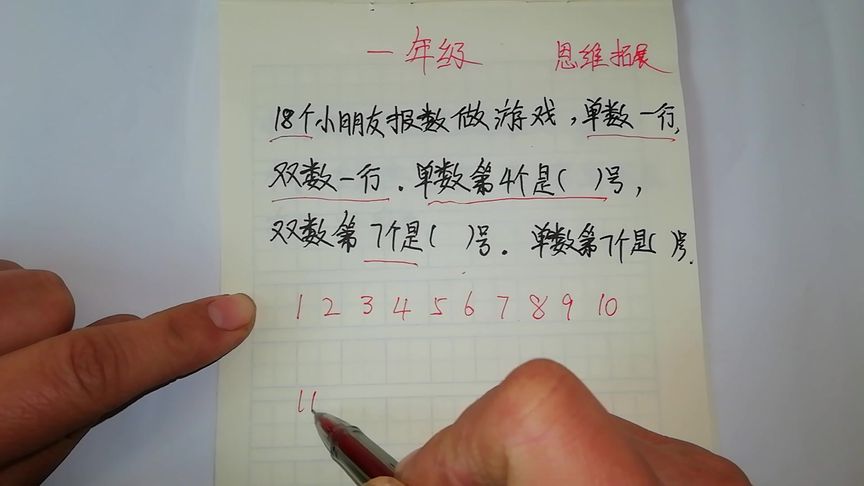 一年级 思维拓展
18个小朋友报数做游戏,单数一行,
双数一行.单数第4个是( )号,
双数第7个是( )号.单数第7个是( )号.
1 2 3 4 5 6 7 8 9 10
11